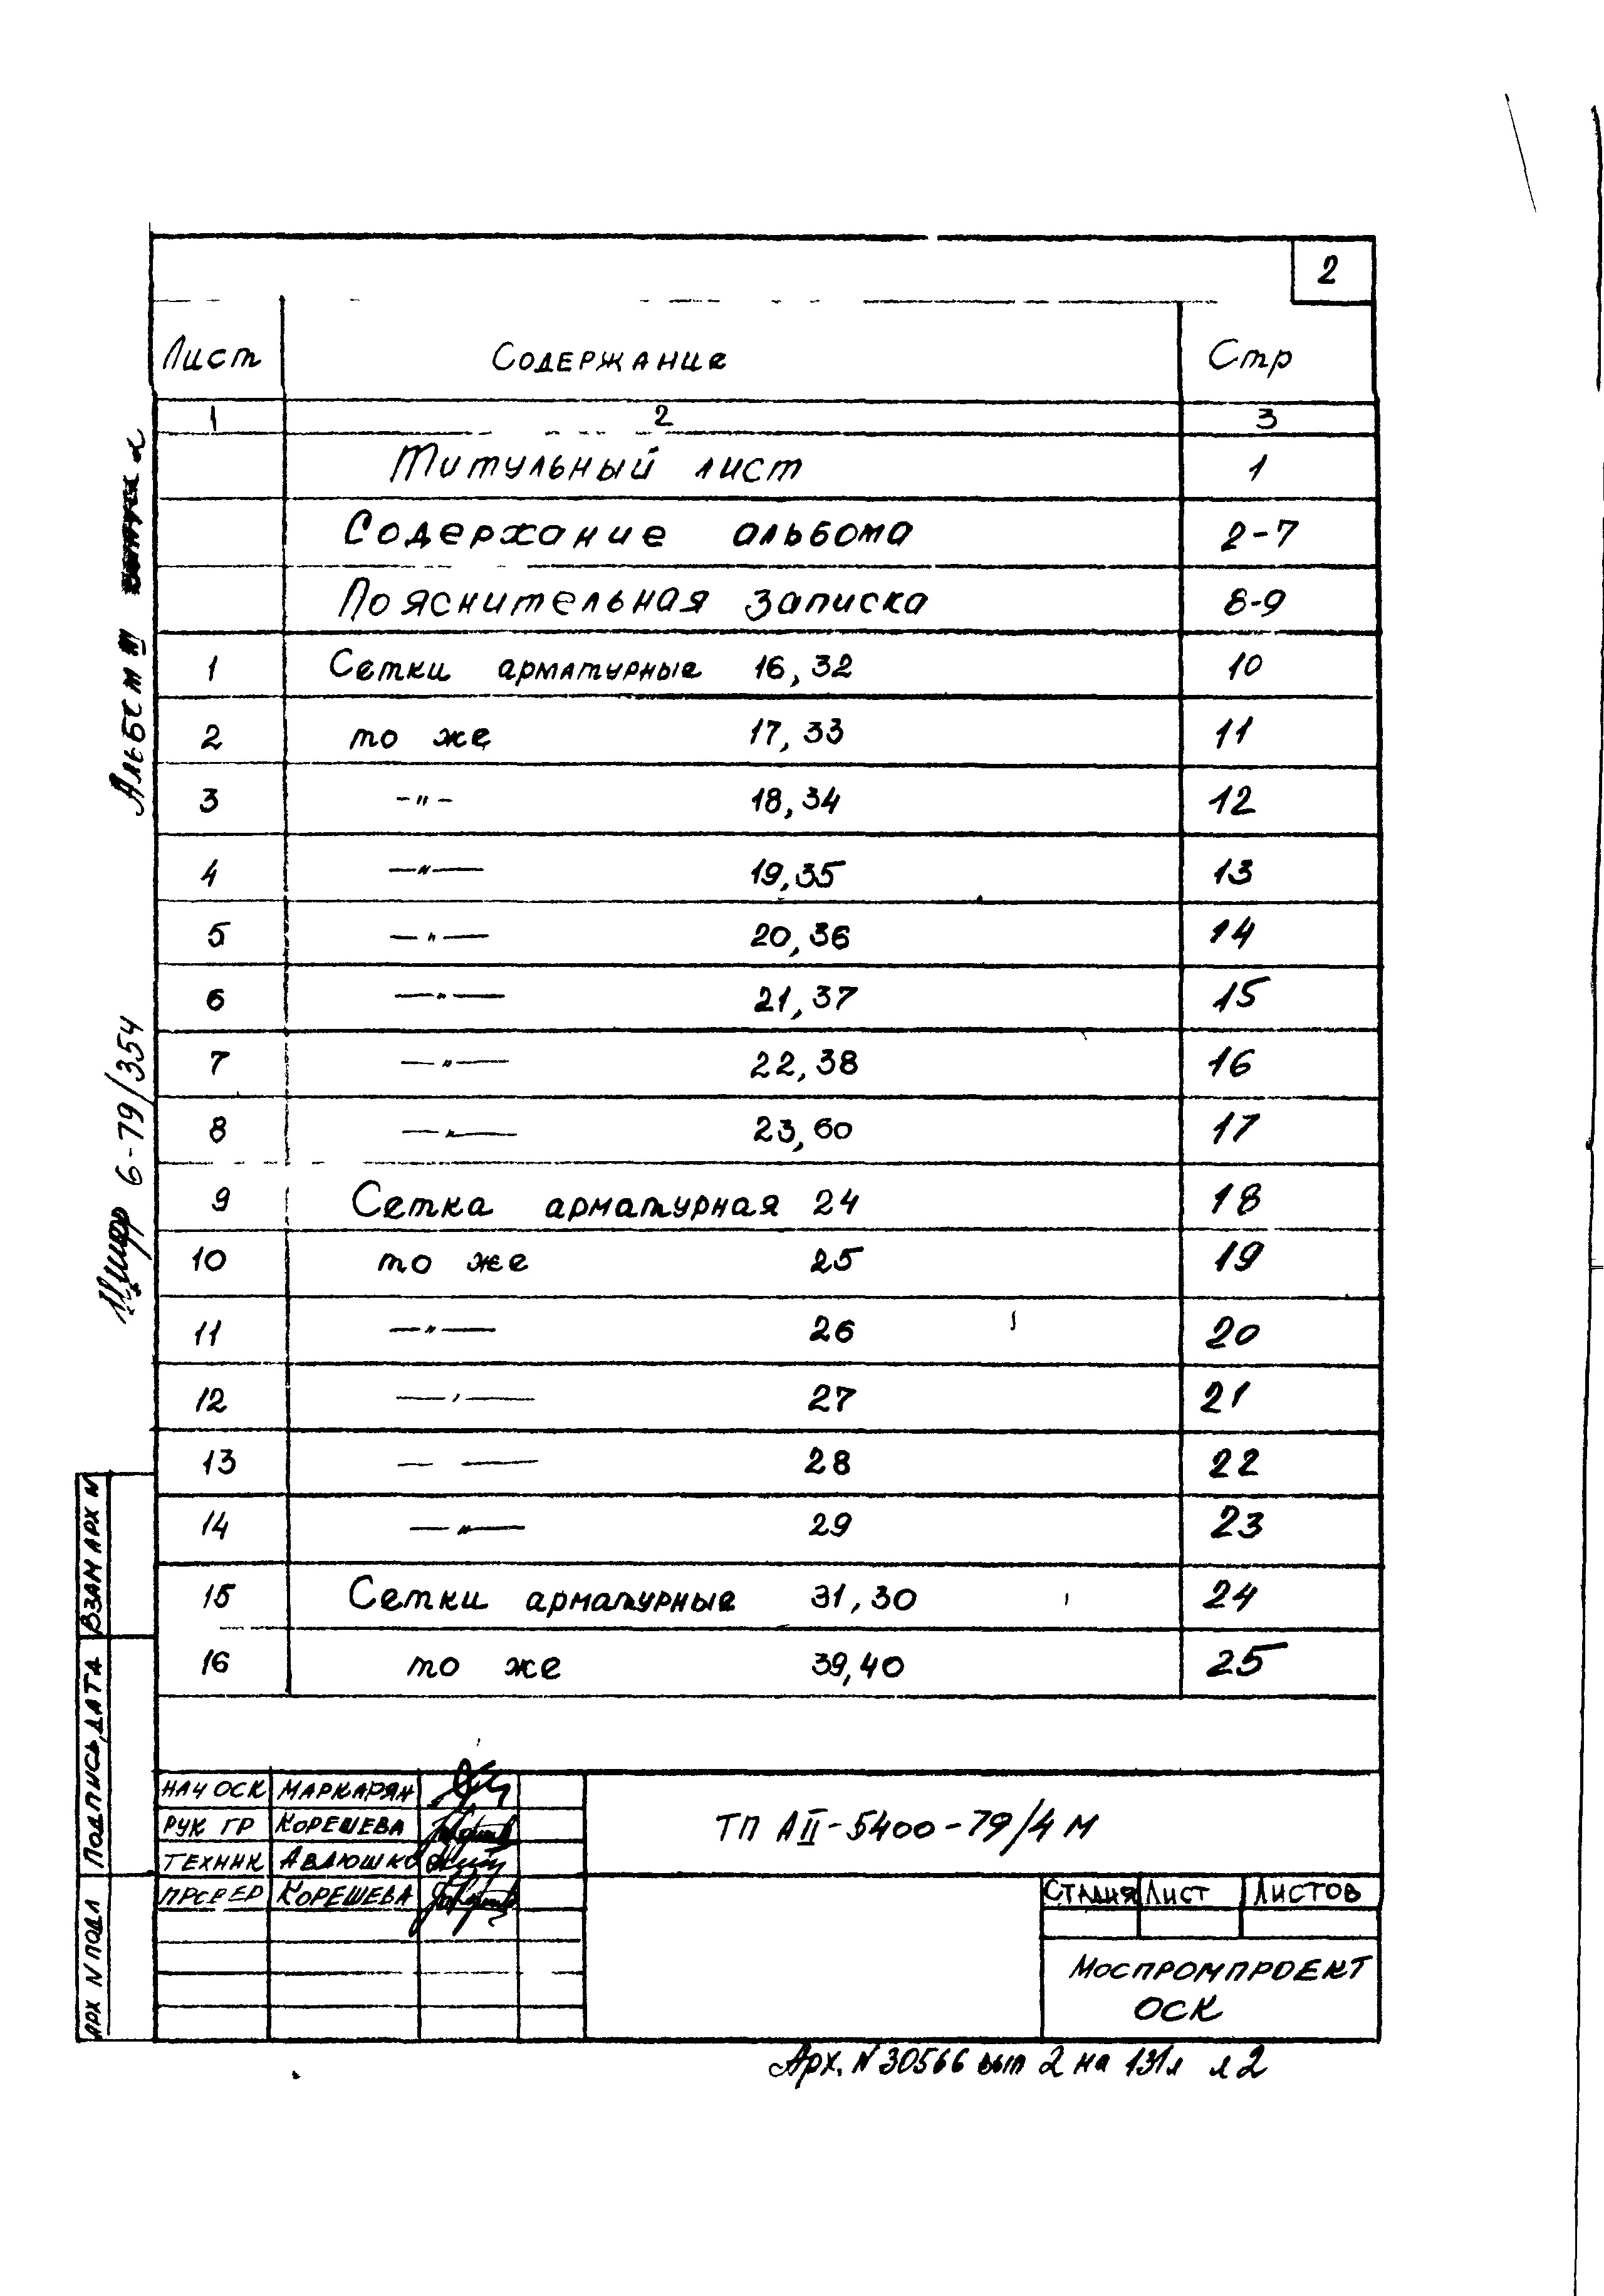 2
Лист Содержание Стр
1 2 3
Титульный лист 1
Содержание альбома 2-7
Пояснительная записка 8-9
1 Сетки арматурные 16, 32 10
2 то же 17, 33 11
3 -"- 18, 34 12
4 -"- 19, 35 13
5 -"- 20, 36 14
6 -"- 21, 37 15
7 -"- 22, 38 16
8 -"- 23, 60 17
9 Сетка арматурная 24 18
10 то же 25 19
11 -"- 26 20
12 -"- 27 21
13 — — 28 22
14 -"- 29 23
15 Сетки арматурные 31, 30 24
16 то же 39, 40 25
Альбом III
Шифр 6-79/354
Взам арх N
Подпись, дата
Арх N подл
Нач ОСК Маркарян
Рук гр Корешева
Техник Авдюшко
Провер Корешева
ТП АII-5400-79/4 М
Стадия Лист Листов
Моспромпроект
ОСК
Арх. N 30566 вып 2 на 131л л 2